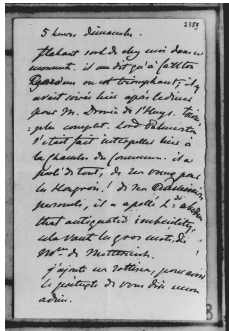 2359
5 heures dimanche.
Flahaut sort de chez moi dans ce
moment. il me dit qu'à Carlton
Gardens on est triomphant; il y
avait soirée hier après le dîner
pour M. Drouin de l'Huys. triom-
phe complet. Lord Palmerston
s'était fait interpeller hier à
la chambre des communes. il a
parlé de tout, de ses vœux pour
les Hongrois! de ses
personnels, il a appelé Ld Aberdeen
that antiquated imbecility,
cela vaut les gros mots de
Mme de Metternich.
j'ajoute ces sottises, pour avoir
le prétexte de vous dire encore
adieu.
8